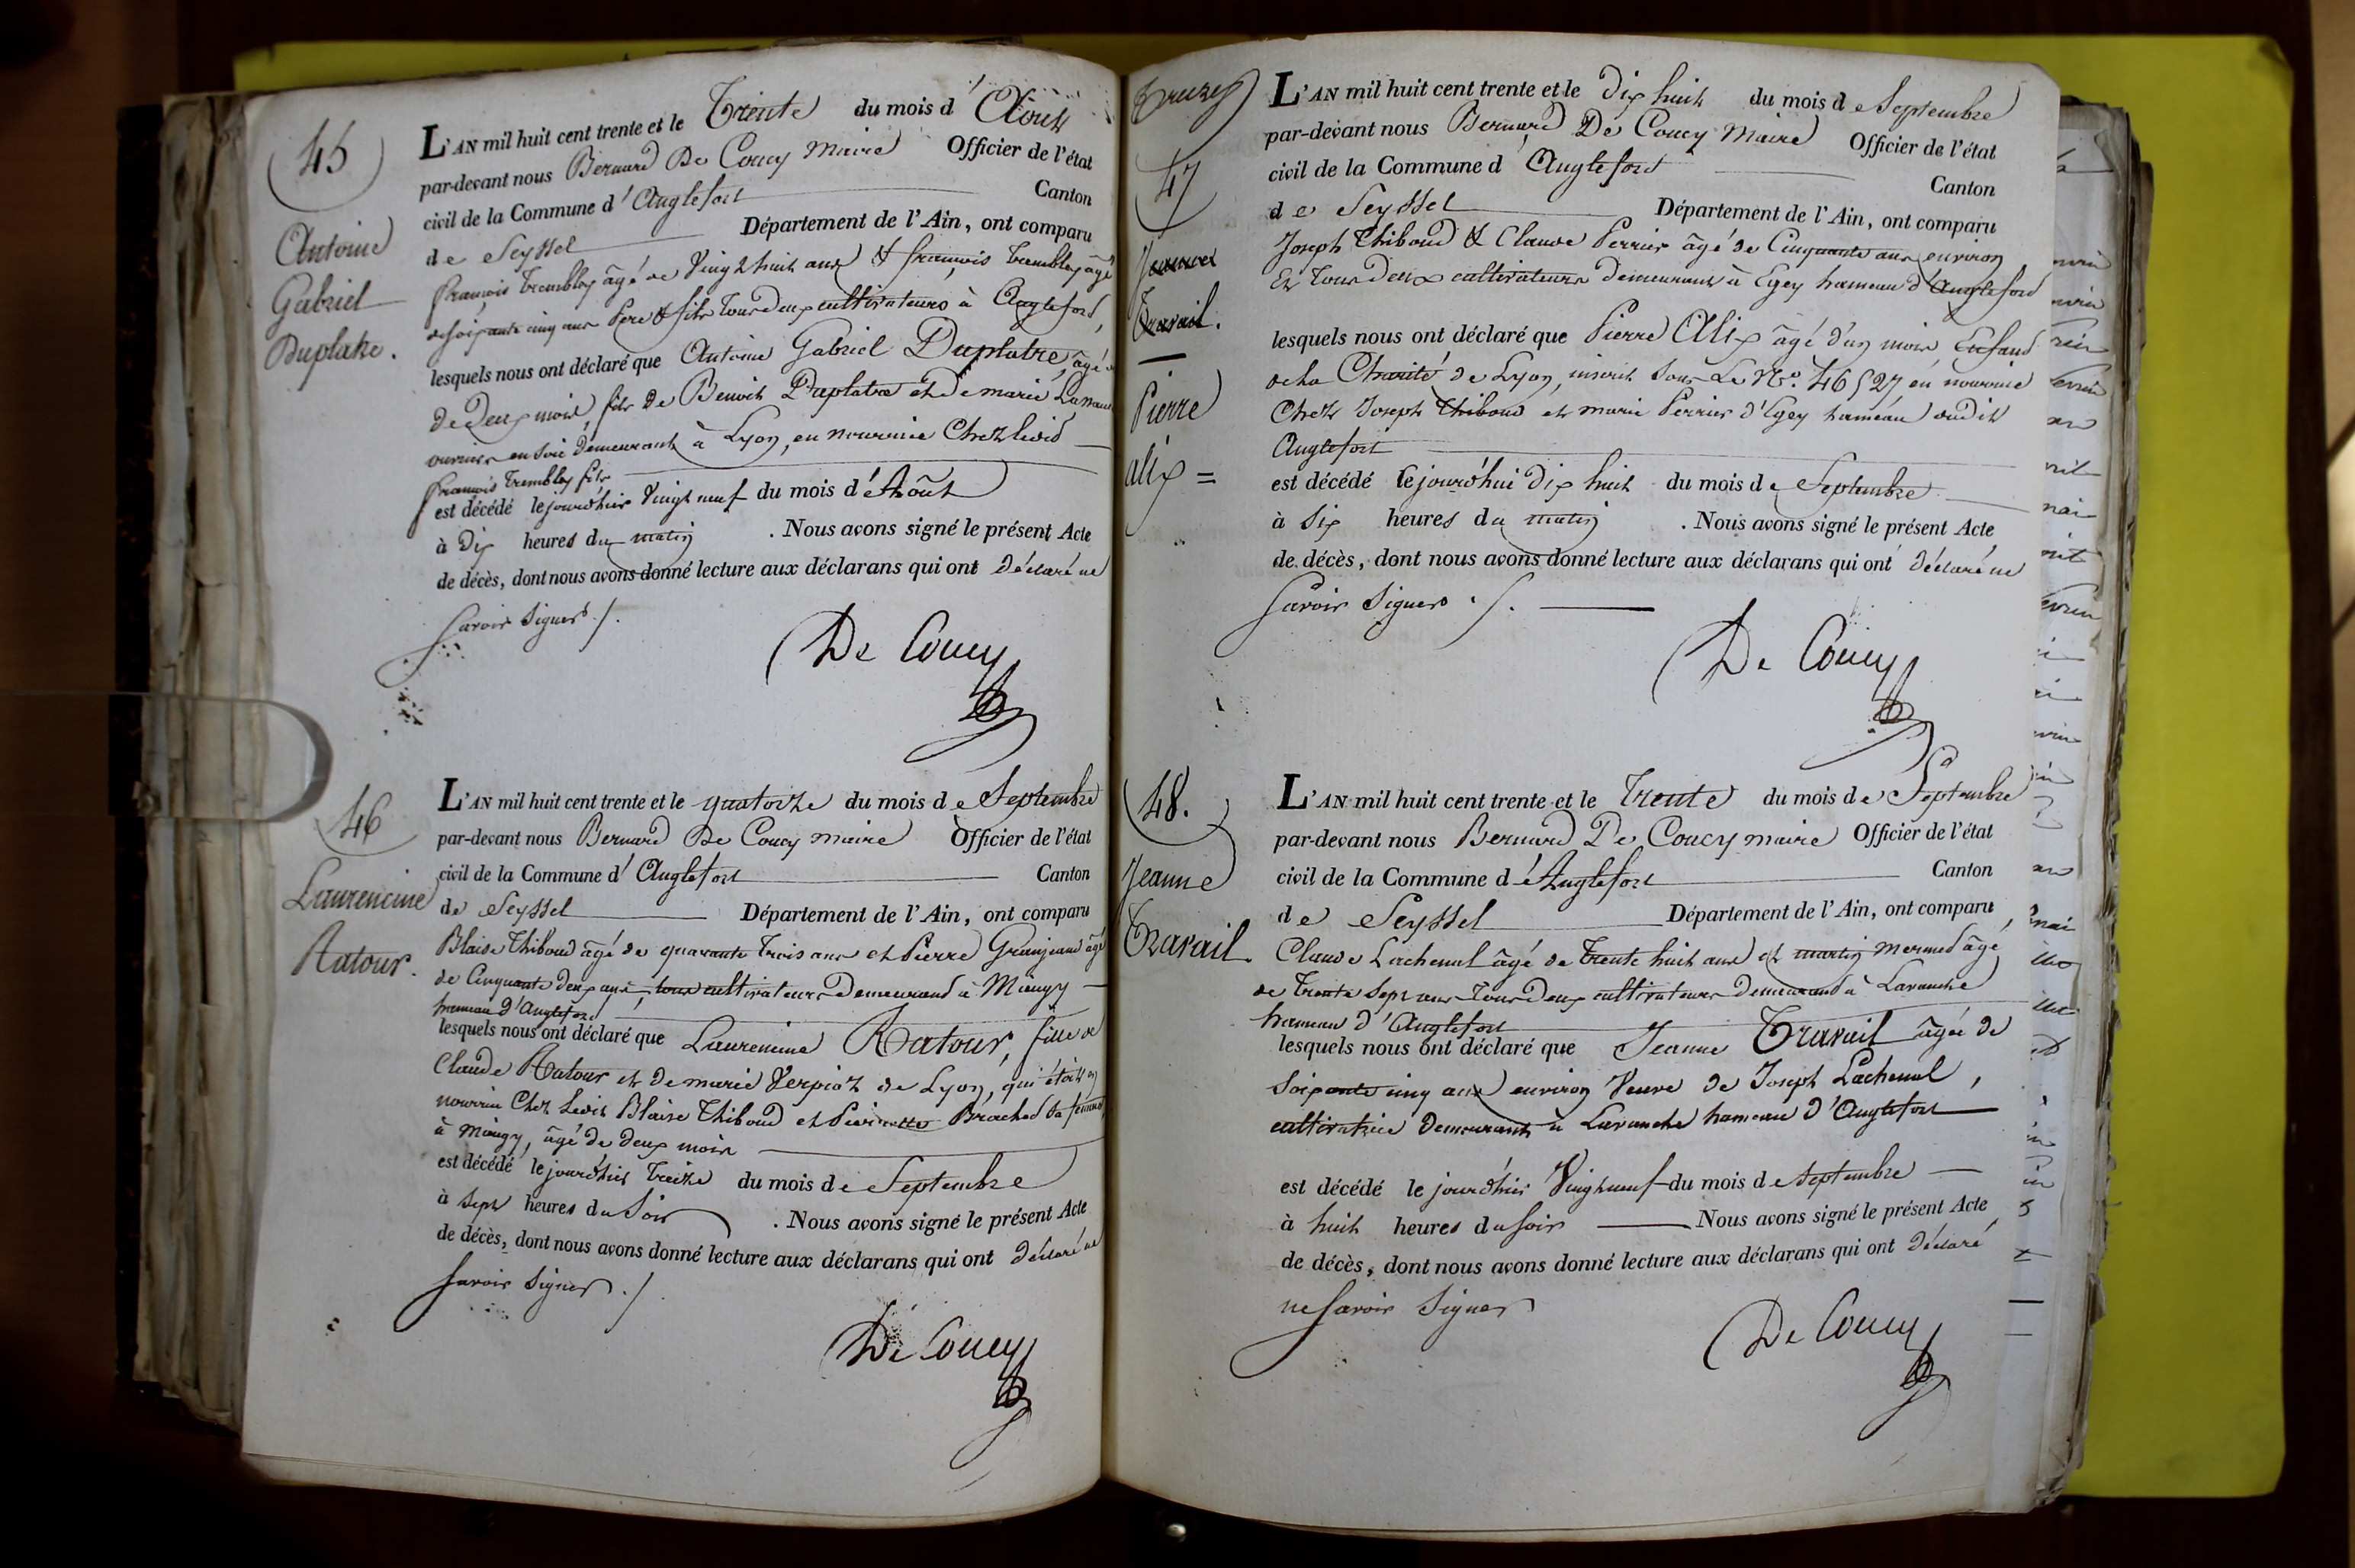 45
Antoine
Gabriel
Duplatre.
L'AN mil huit cent trente et le Trente du mois d'Aout
par-devant nous Bernard De Coucy Maire Officier de l'état
civil de la Commune d'Anglefort Canton
de Seyssel Département de l'Ain, ont comparu
françois Tremblay âgé de Vingt huit ans & françois Tremblay âgé
de soixante cinq ans Pere & fils tous deux cultivateurs à Anglefort,
lesquels nous ont déclaré que Antoine Gabriel Duplatre, âgé
de deux mois, fils de Benoit Duplatre et de marie
ouvrier en soie demeurant à Lyon, en nourrice Chez ledit
françois Tremblay fils
est décédé le jourd'hier Vingt neuf du mois d'Août
à Dix heures du matin . Nous avons signé le présent Acte
de décès, dont nous avons donné lecture aux déclarans qui ont déclaré ne
savoir signer ./.
De Coucy
46
Laurencine
Ratour.
L'AN mil huit cent trente et le quatorze du mois de Septembre
par-devant nous Bernard De Coucy maire Officier de l'état
civil de la Commune d'Anglefort Canton
de Seyssel Département de l'Ain, ont comparu
Blaise Thiboud âgé de quarante trois ans et Pierre Granjeand âgé
de Cinquante deux ans, tous cultivateurs Demeurand à Miaugy
hameau d'Anglefort
lesquels nous ont déclaré que Laurencine Ratour, fille de
Claude Ratour et de marie Verpioz de Lyon, qui étoit en
nourrice Chez Ledit Blaise Thiboud et Pierrette Brachod sa femme
à Miaugy, âgé de deux mois
est décédé le jourd'hier Treize du mois de Septembre
à sept heures du Soir . Nous avons signé le présent Acte
de décès, dont nous avons donné lecture aux déclarans qui ont déclaré ne
savoir signer ./.
De Coucy
47
Jeanne
Travail.
Pierre
alix =
L'AN mil huit cent trente et le Dix huit du mois de Septembre
par-devant nous Bernard De Coucy Maire Officier de l'état
civil de la Commune d'Anglefort Canton
de Seyssel Département de l'Ain, ont comparu
Joseph Thiboud & Claude Perrier âgé de Cinquante ans environ
Et Tous Deux cultivateurs demeurant à Egey hameau d'Anglefort
lesquels nous ont déclaré que Pierre Alix âgé d'un mois, Enfant
de la Charité de Lyon, inscrit sous Le No. 46527 en nourrice
Chez Joseph Thiboud et marie Perrier d'Egey hameau dudit
Anglefort
est décédé le jourd'hui Dix huit du mois de Septembre
à Six heures du matin . Nous avons signé le présent Acte
de décès, dont nous avons donné lecture aux déclarans qui ont déclaré ne
savoir signer ./.
De Coucy
48.
Jeanne
Travail.
L'AN mil huit cent trente et le Trente du mois de Septembre
par-devant nous Bernard De Coucy maire Officier de l'état
civil de la Commune d'Anglefort Canton
de Seyssel Département de l'Ain, ont comparu
Claude Lachenal âgé de Trente huit ans et martin Mermed âgé
de Trente Sept ans Tous Deux cultivateurs Demeurand à Lavanche
hameau d'Anglefort
lesquels nous ont déclaré que Jeanne Travail âgée de
Soixante cinq ans environ Veuve de Joseph Lachenal,
cultivatrice Demeurant à Lavanche hameau d'Anglefort
est décédé le jourd'hier Vingt neuf du mois de Septembre
à huit heures du soir Nous avons signé le présent Acte
de décès, dont nous avons donné lecture aux déclarans qui ont déclaré
ne savoir signer
De Coucy